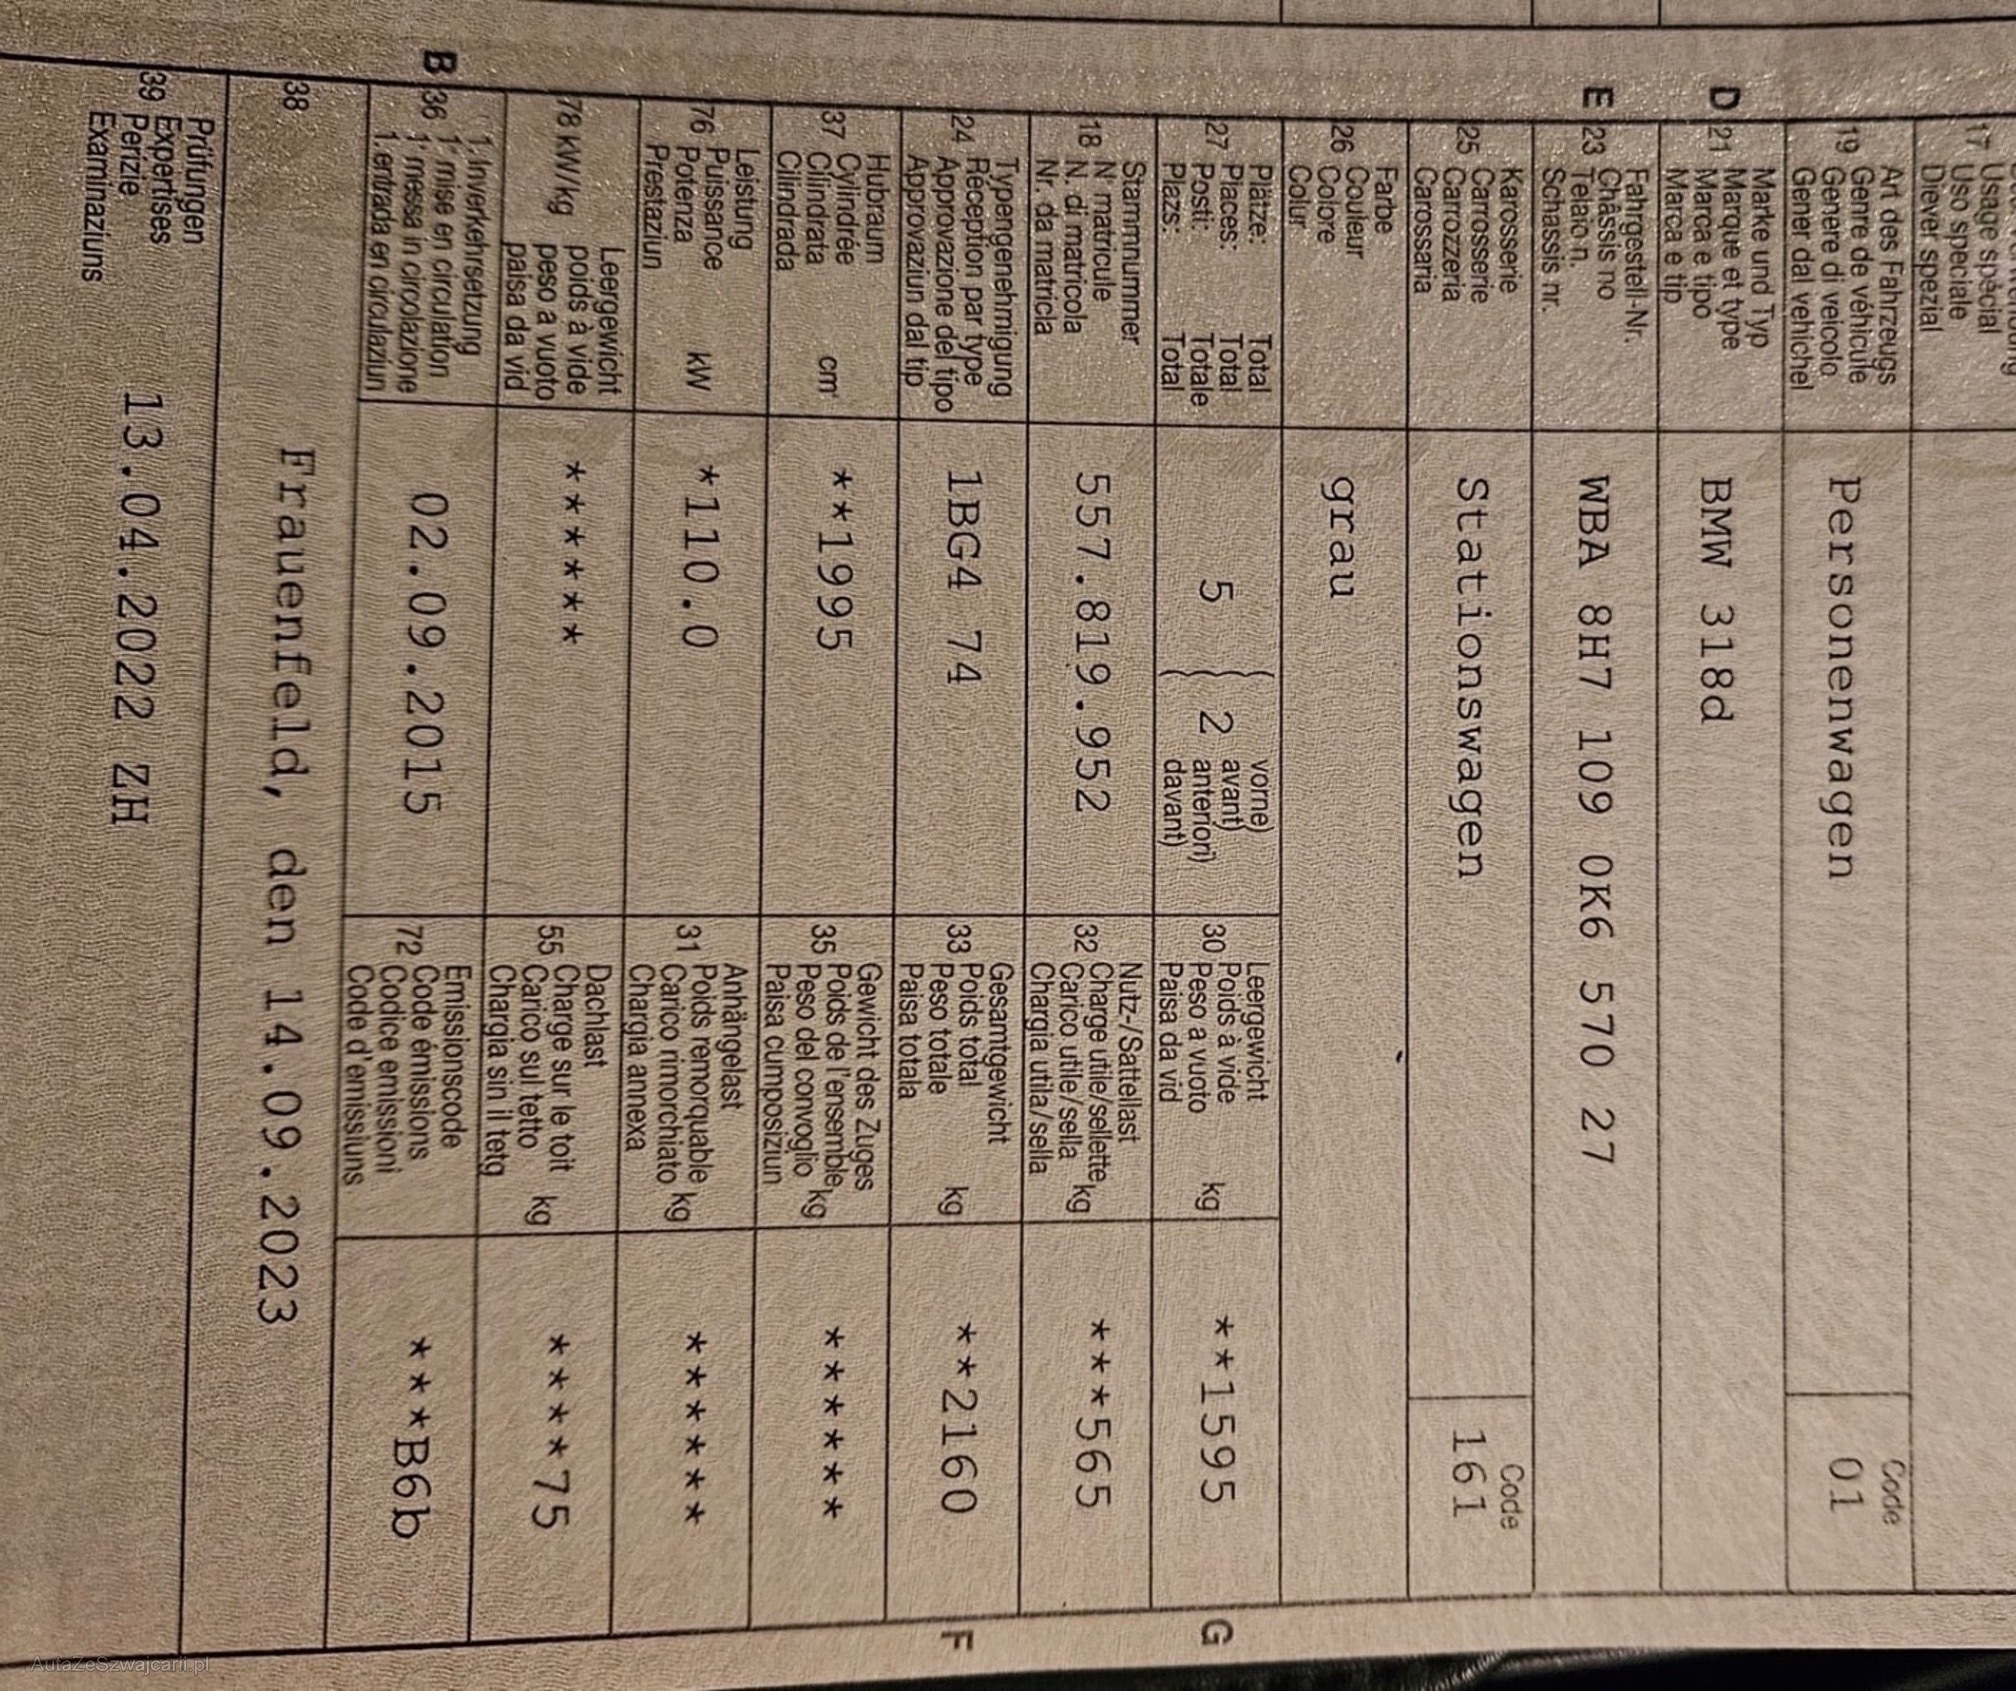 17 Usage spécial
Uso speciale
Diever spezial
Art des Fahrzeugs
19 Genre de véhicule
Genere di veicolo
Gener dal vehichel
Personenwagen
Code
01
Marke und Typ
D 21 Marque et type
Marca e tipo
Marca e tip
BMW 318d
Fahrgestell-Nr.
E 23 Châssis no
Telaio n.
Schassis nr.
WBA 8H7 109 0K6 570 27
Karosserie
25 Carrosserie
Carrozzeria
Carossaria
Stationswagen
Code
161
Farbe
26 Couleur
Colore
Colur
grau
Plätze: Total
27 Places: Total
Posti: Totale
Plazs: Total
5 ( 2 vorne)
avant)
anteriori)
davant)
Leergewicht
30 Poids à vide
Peso a vuoto kg
Paisa da vid
**1595
G
Stammnummer
18 N° matricule
N. di matricola
Nr. da matricla
557.819.952
Nutz-/Sattellast
32 Charge utile/sellette
Carico utile/sella kg
Chargia utila/sella
***565
Typengenehmigung
24 Réception par type
Approvazione del tipo
Approvaziun dal tip
1BG4 74
Gesamtgewicht
33 Poids total
Peso totale kg
Paisa totala
**2160
F
Hubraum
37 Cylindrée
Cilindrata cm³
Cilindrada
**1995
Gewicht des Zuges
35 Poids de l'ensemble
Peso del convoglio kg
Paisa cumposiziun
******
Leistung
76 Puissance
Potenza kW
Prestaziun
*110.0
Anhängelast
31 Poids remorquable
Carico rimorchiato kg
Chargia annexa
******
Leergewicht
78 kW/kg poids à vide
peso a vuoto
paisa da vid
******
Dachlast
55 Charge sur le toit
Carico sul tetto kg
Chargia sin il tetg
****75
1. Inverkehrsetzung
B 36 1re mise en circulation
1a messa in circolazione
1. entrada en circulaziun
02.09.2015
Emissionscode
72 Code émissions
Codice emissioni
Code d'emissiuns
***B6b
38 Frauenfeld, den 14.09.2023
Prüfungen
39 Expertises
Perizie
Examinaziuns
13.04.2022 ZH
AutaZeSzwajcarii.pl